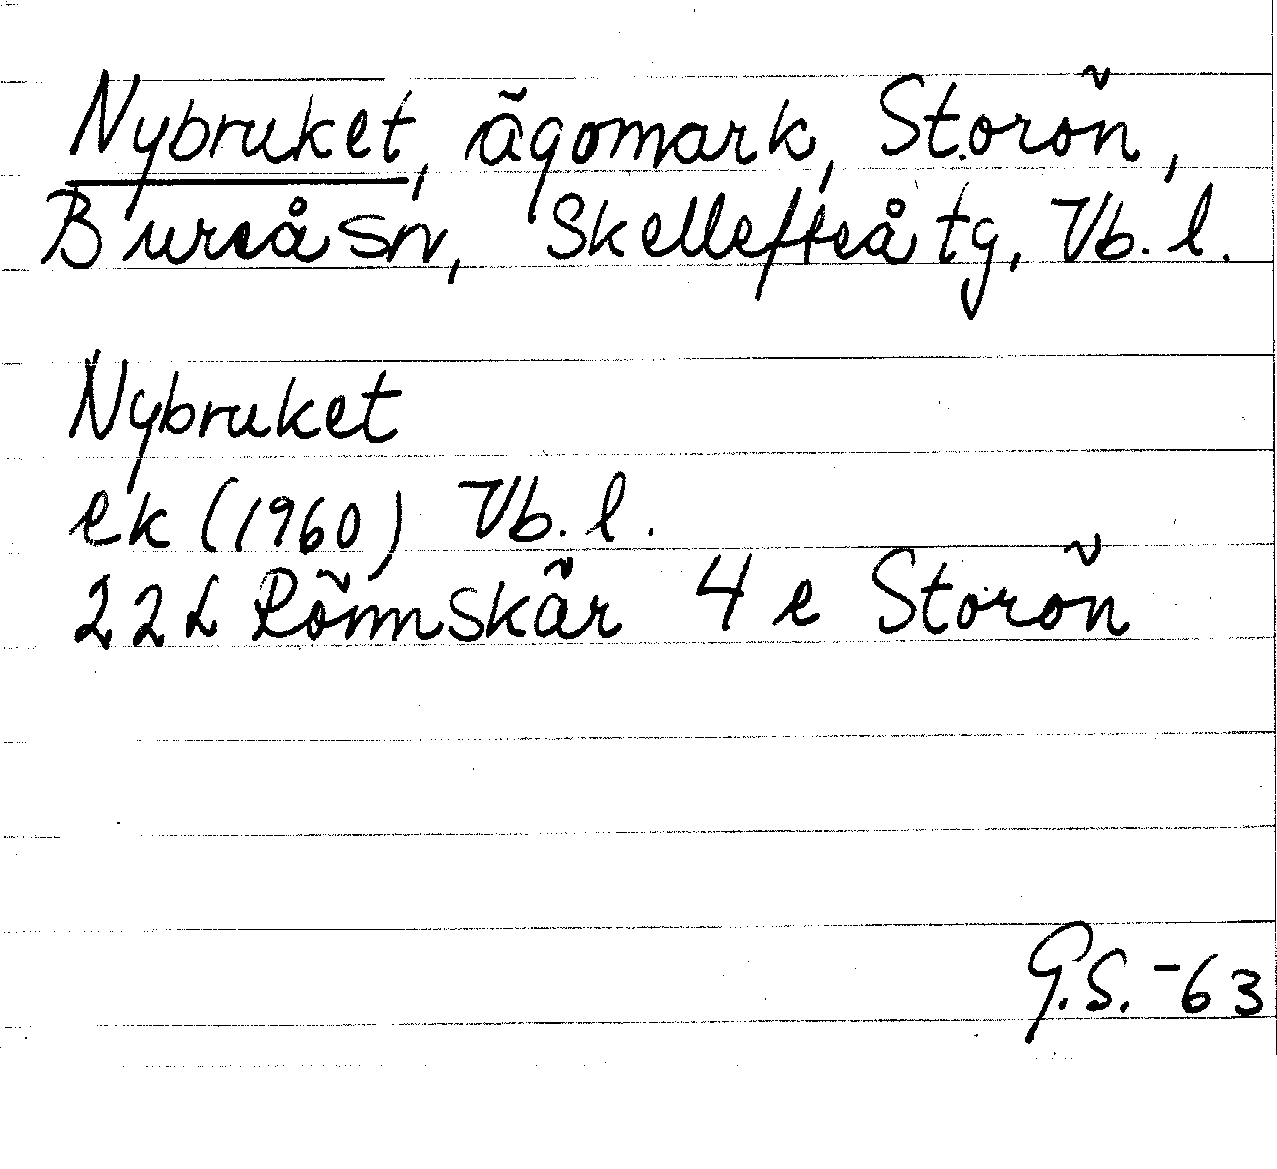 Nybruket, ägomark, Storön,
Bureå sn, Skellefteå tg, Vb. l.
Nybruket
ek (1960) Vb. l.
22 L Rönnskär 4 e Storön
G.S. -63